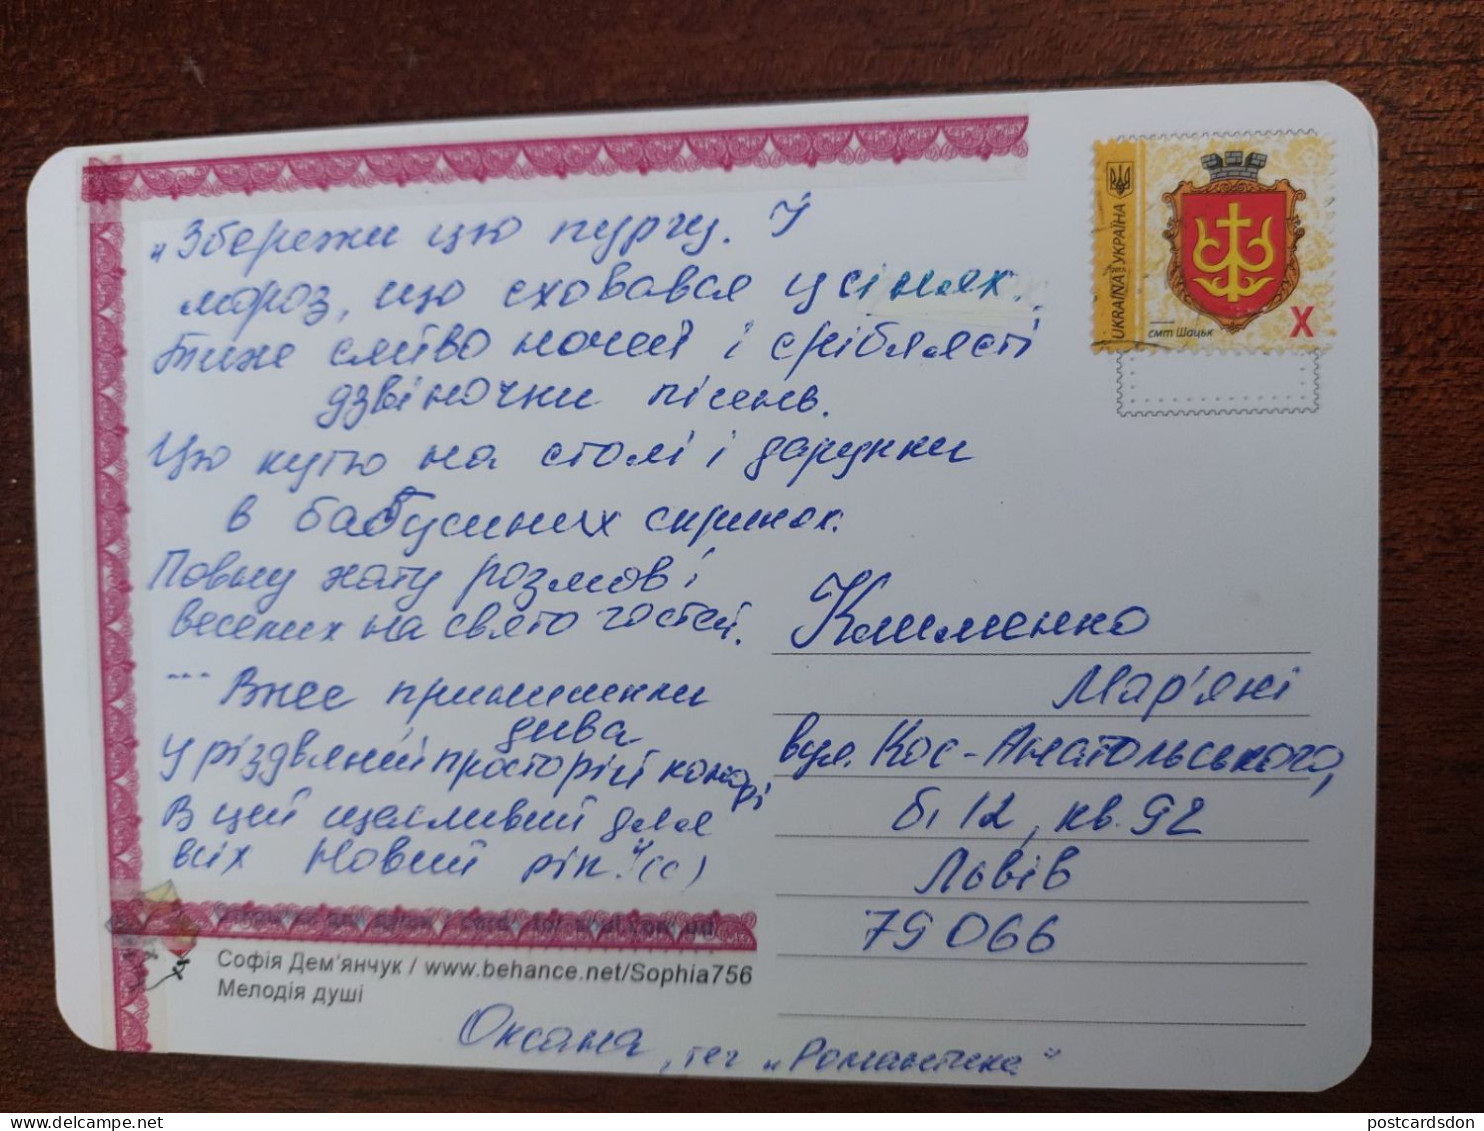 „Збережи цю пургу. Й
мороз, що сховався у сінях.
Тихе сяйво ночей і сріблясті
дзвіночки пісень.
Цю кутю на столі і дарунки
в бабусиних скринях.
Повну хату розмов і
веселих на свято гостей.
... Внес
дива
У різдвяній просторій
В цей щасливий для
всіх Новий рік." (с)
Софія Дем'янчук / www.behance.net/Sophia756
Мелодія душі
Оксана, тег „Романтика"
UKRAINA УКРАЇНА
смт Шацьк
X
Клименко
Мар'яні
вул. Кос-Анатольського,
б. 12, кв. 92
Львів
79066
www.delcampe.net
postcardsdon